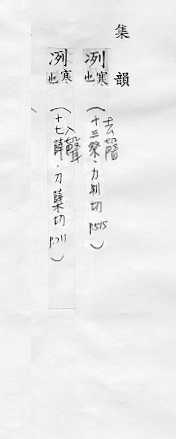 集韻
冽寒也(去聲 十三祭.力制切 P.515)
冽寒也(入聲 十七薛.力蘖切 P.711)